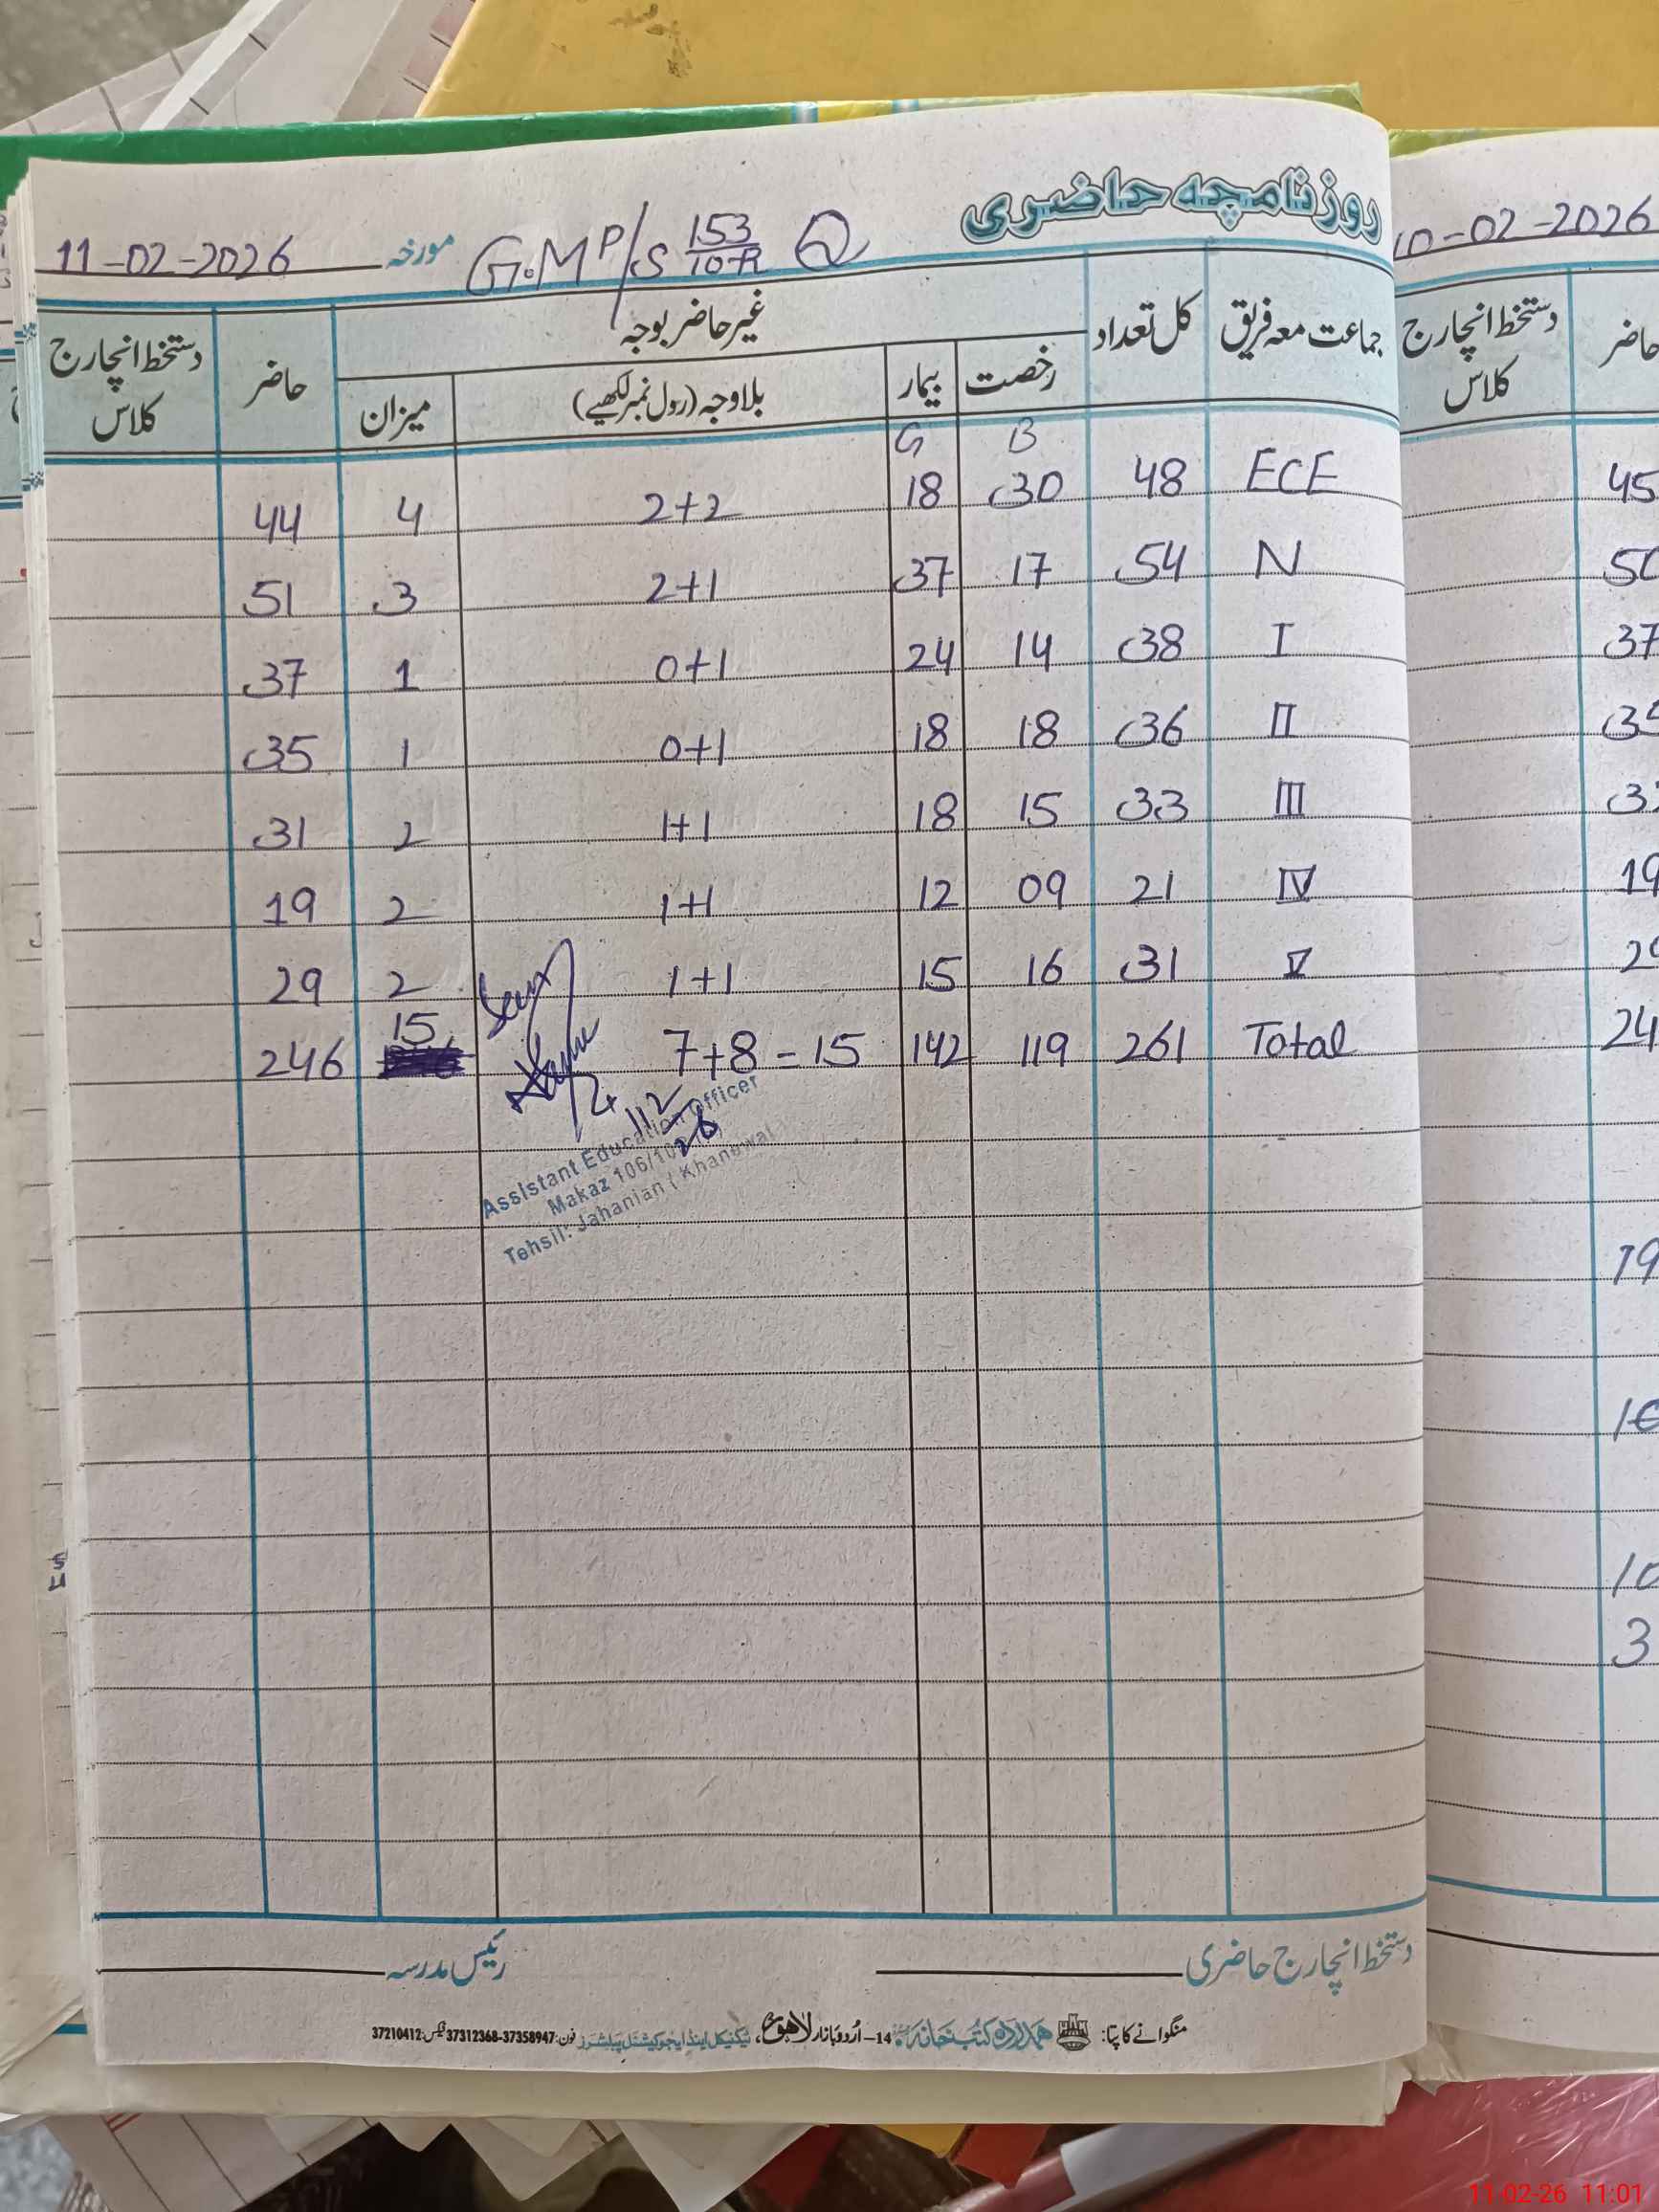 روزنامچہ حاضری
G.M P/S 153/10-R Q
مورخہ 11-02-2026
جماعت معہ فریق کل تعداد غیر حاضر بوجہ حاضر دستخط انچارج کلاس
رخصت بیمار بلاوجہ (رول نمبر لکھیے) میزان
B G
ECE 48 30 18 2+2 4 44
N 54 17 37 2+1 3 51
I 38 14 24 0+1 1 37
II 36 18 18 0+1 1 35
III 33 15 18 1+1 2 31
IV 21 09 12 1+1 2 19
V 31 16 15 1+1 2 29
Total 261 119 142 7+8=15 15 246
Seen
11/2/26
Assistant Education Officer
Makaz 106/10
Tehsil: Jahanian (Khanewal
دستخط انچارج حاضری رئیس مدرسہ
منگوانے کا پتا: ہمدرد کتب خانہ 14-اُردو بازار لاہور، ٹیکنیکل اینڈ ایجوکیشنل پبلیشرز فون: 37358947-37312368 فیکس: 37210412
10-02-2026
حاضر دستخط انچارج کلاس
45
37
19
19
3
11-02-26 11:01